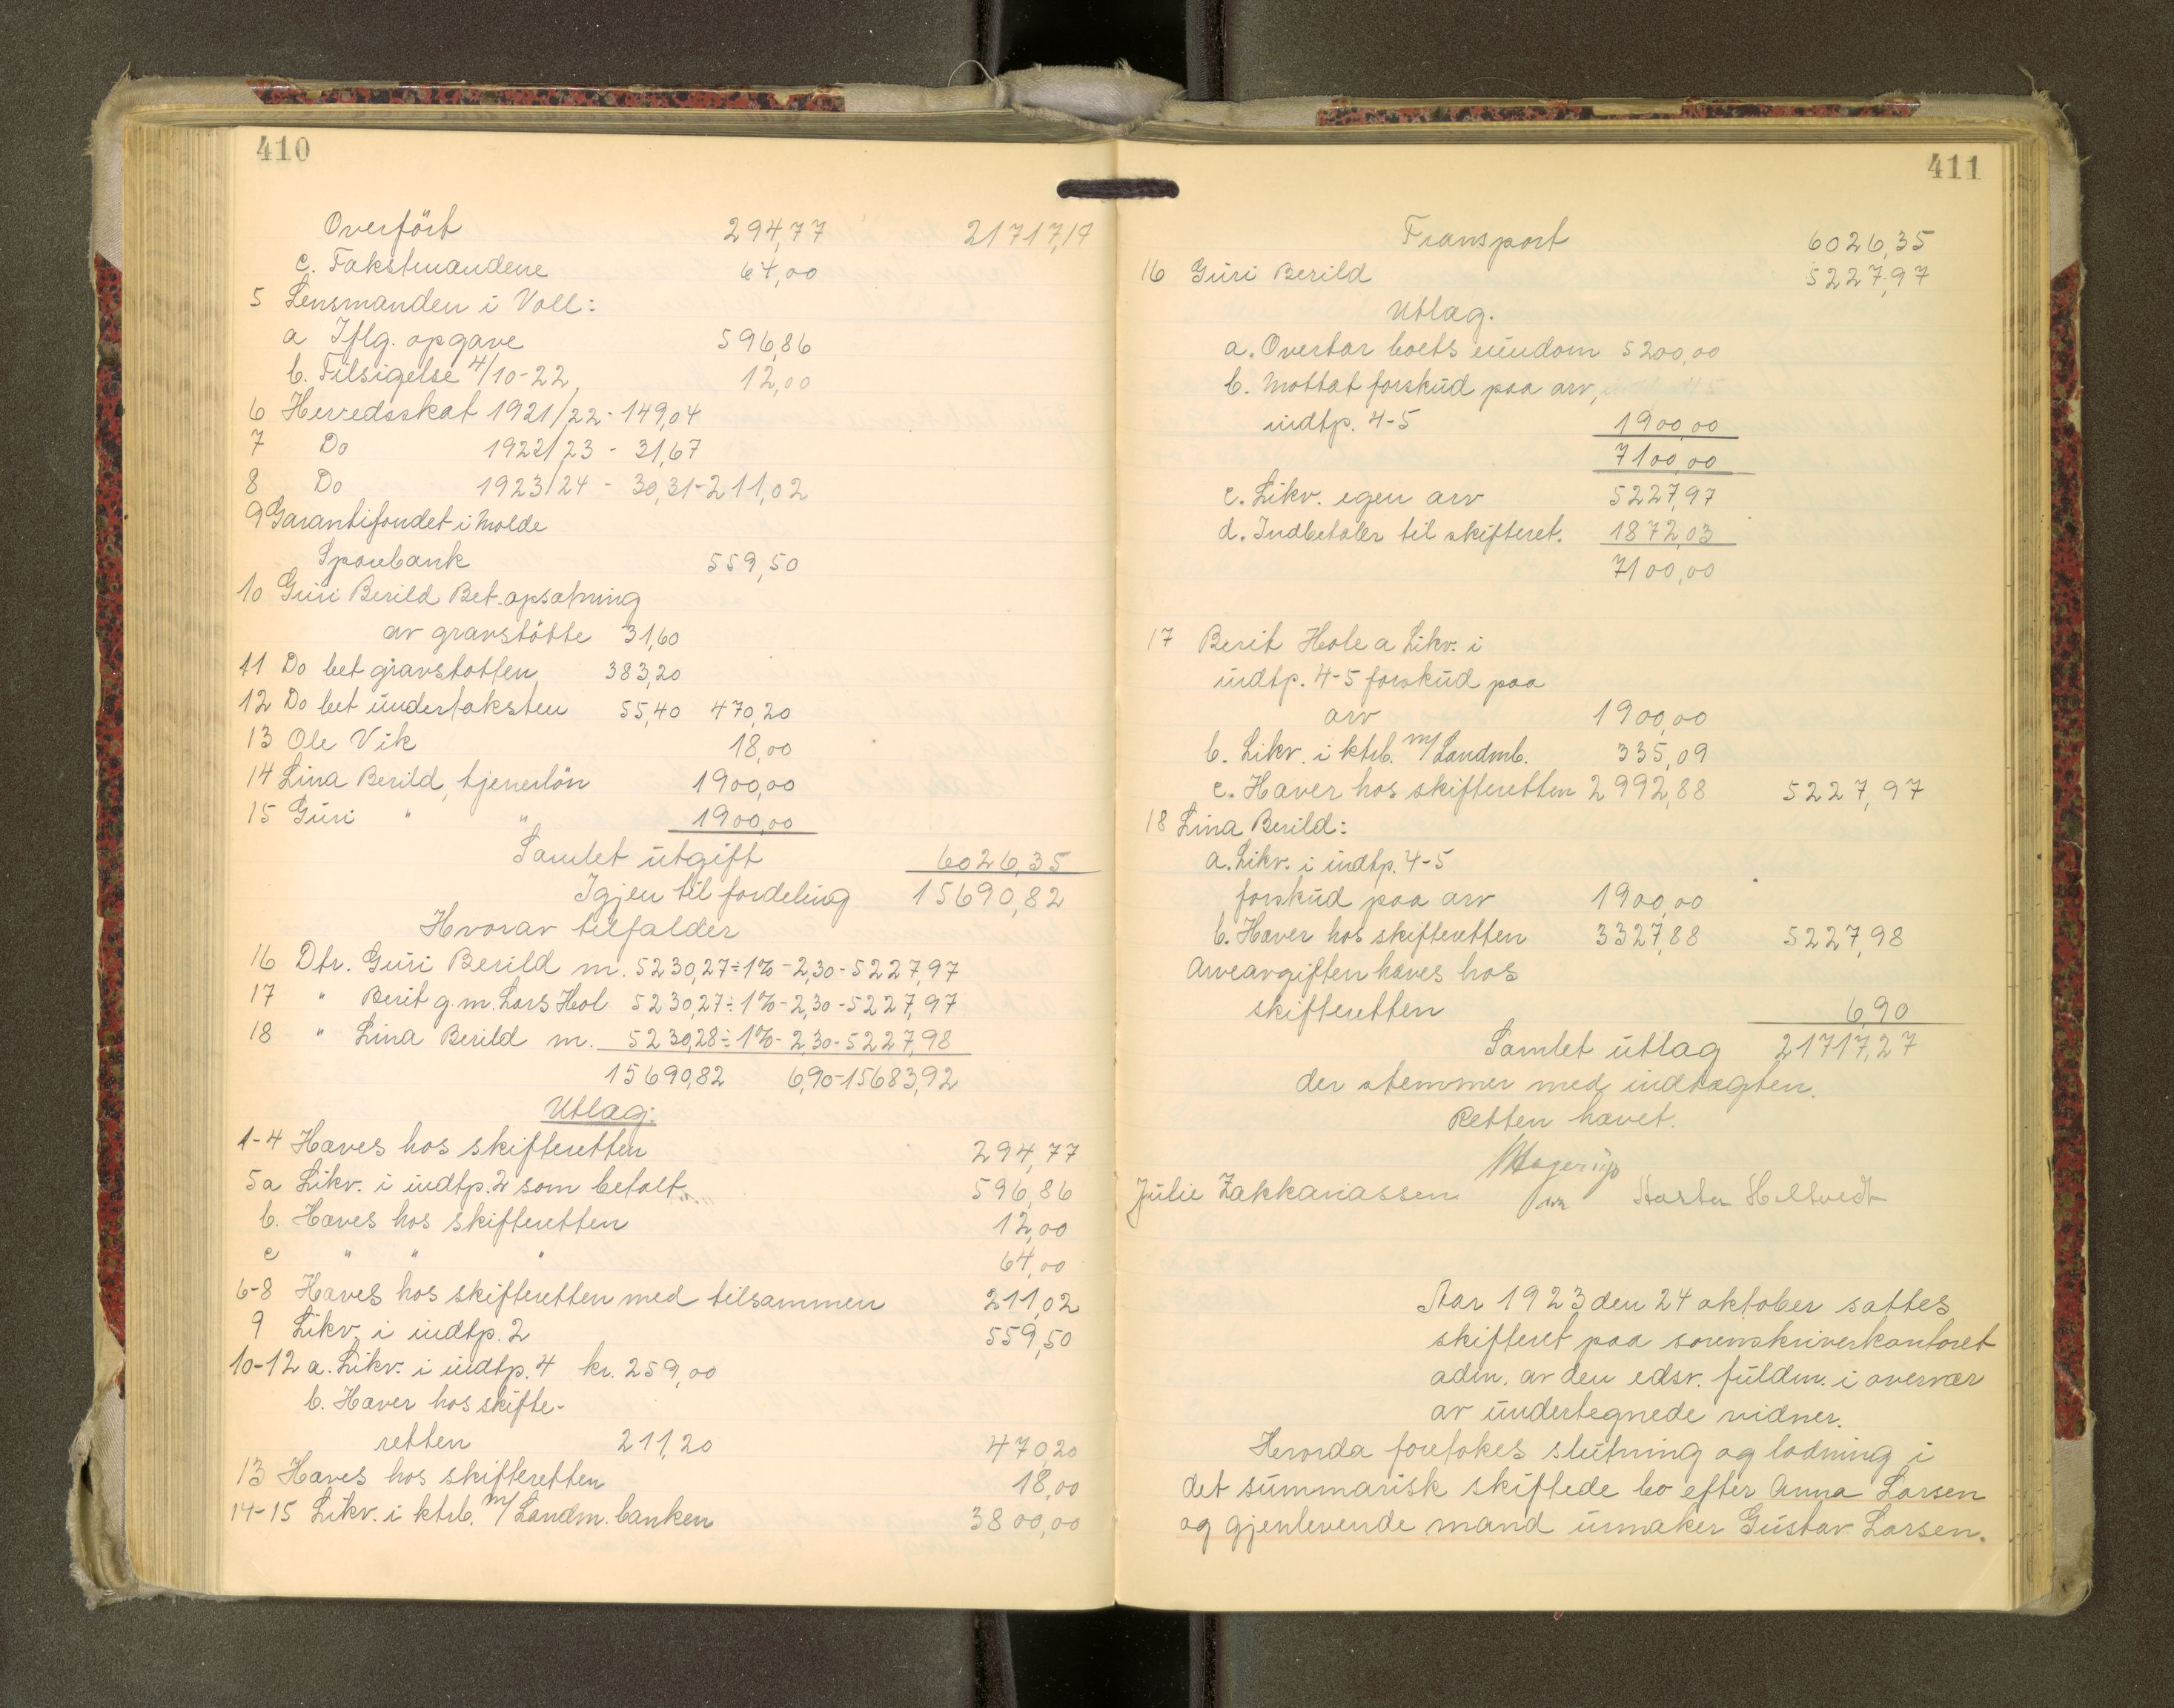 410
Overført 294,77 21717,17
c. Takstmandene 64,00
5 Lensmanden i Voll:
a Iflg. opgave 596,86
b. Tilsigelse 4/10-22 12,00
6 Herredsskat 1921/22 - 149,04
7 Do 1922/23 - 31,67
8 Do 1923/24 - 30,31 - 211,02
9 Garantifondet i Molde
Sparebank 559,50
10 Guri Berild Bet. opsætning
av gravstøtte 31,60
11 Do bet gravstøtten 383,20
12 Do bet undertaksten 55,40 470,20
13 Ole Vik 18,00
14 Lina Berild, tjenerløn 1900,00
15 Guri " " 1900,00
Samlet utgift 6026,35
Igjen til fordeling 15690,82
Hvorav tilfalder
16 Dtr. Guri Berild m. 5230,27 ÷ 1% - 2,30 - 5227,97
17 " Berit g.m. Lars Hol 5230,27 ÷ 1% - 2,30 - 5227,97
18 " Lina Berild m. 5230,28 ÷ 1% - 2,30 - 5227,98
15690,82 6,90 - 15683,92
Utlæg:
1-4 Haves hos skifteretten 294,77
5a Likv. i indtp. 2 som betalt 596,86
b. Haves hos skifteretten 12,00
c " " " 64,00
6-8 Haves hos skifteretten med tilsammen 211,02
9 Likv. i indtp. 2 559,50
10-12 a. Likv. i indtp. 4 kr. 259,00
b. Haver hos skifte-
retten 211,20 470,20
13 Haves hos skifteretten 18,00
14-15 Likv. i ktrb. m/Landm.banken 3800,00
411
Transport 6026,35
16 Guri Berild 5227,97
Utlæg.
a. Overtar boets eiendom 5200,00
b. Mottat forskud paa arv,
indtp. 4-5 1900,00
7100,00
c. Likv. egen arv 5227,97
d. Indbetaler til skifteret. 1872,03
7100,00
17 Berit Hole a Likv. i
indtp. 4-5 forskud paa
arv 1900,00
b. Likv. i ktrb. m/Landmb. 335,09
c. Haver hos skifteretten 2992,88 5227,97
18 Lina Berild:
a. Likv. i indtp. 4-5
forskud paa arv 1900,00
b. Haver hos skifteretten 3327,88 5227,98
Arveavgiften haves hos
skifteretten 6,90
Samlet utlæg 21717,27
der stemmer med indtægten.
Retten hævet.
Hagerup
Julie Zakkariassen Heltvedt
Aar 1923 den 24 oktober sattes
skifteret paa sorenskriverkontoret
adm. av den edsv. fuldm. i overvær
av undertegnede vidner.
Hvorda foretokes slutning og lodning i
det summarisk skiftede bo efter Anna Larsen
og gjenlevende mand urmaker Gustav Larsen.